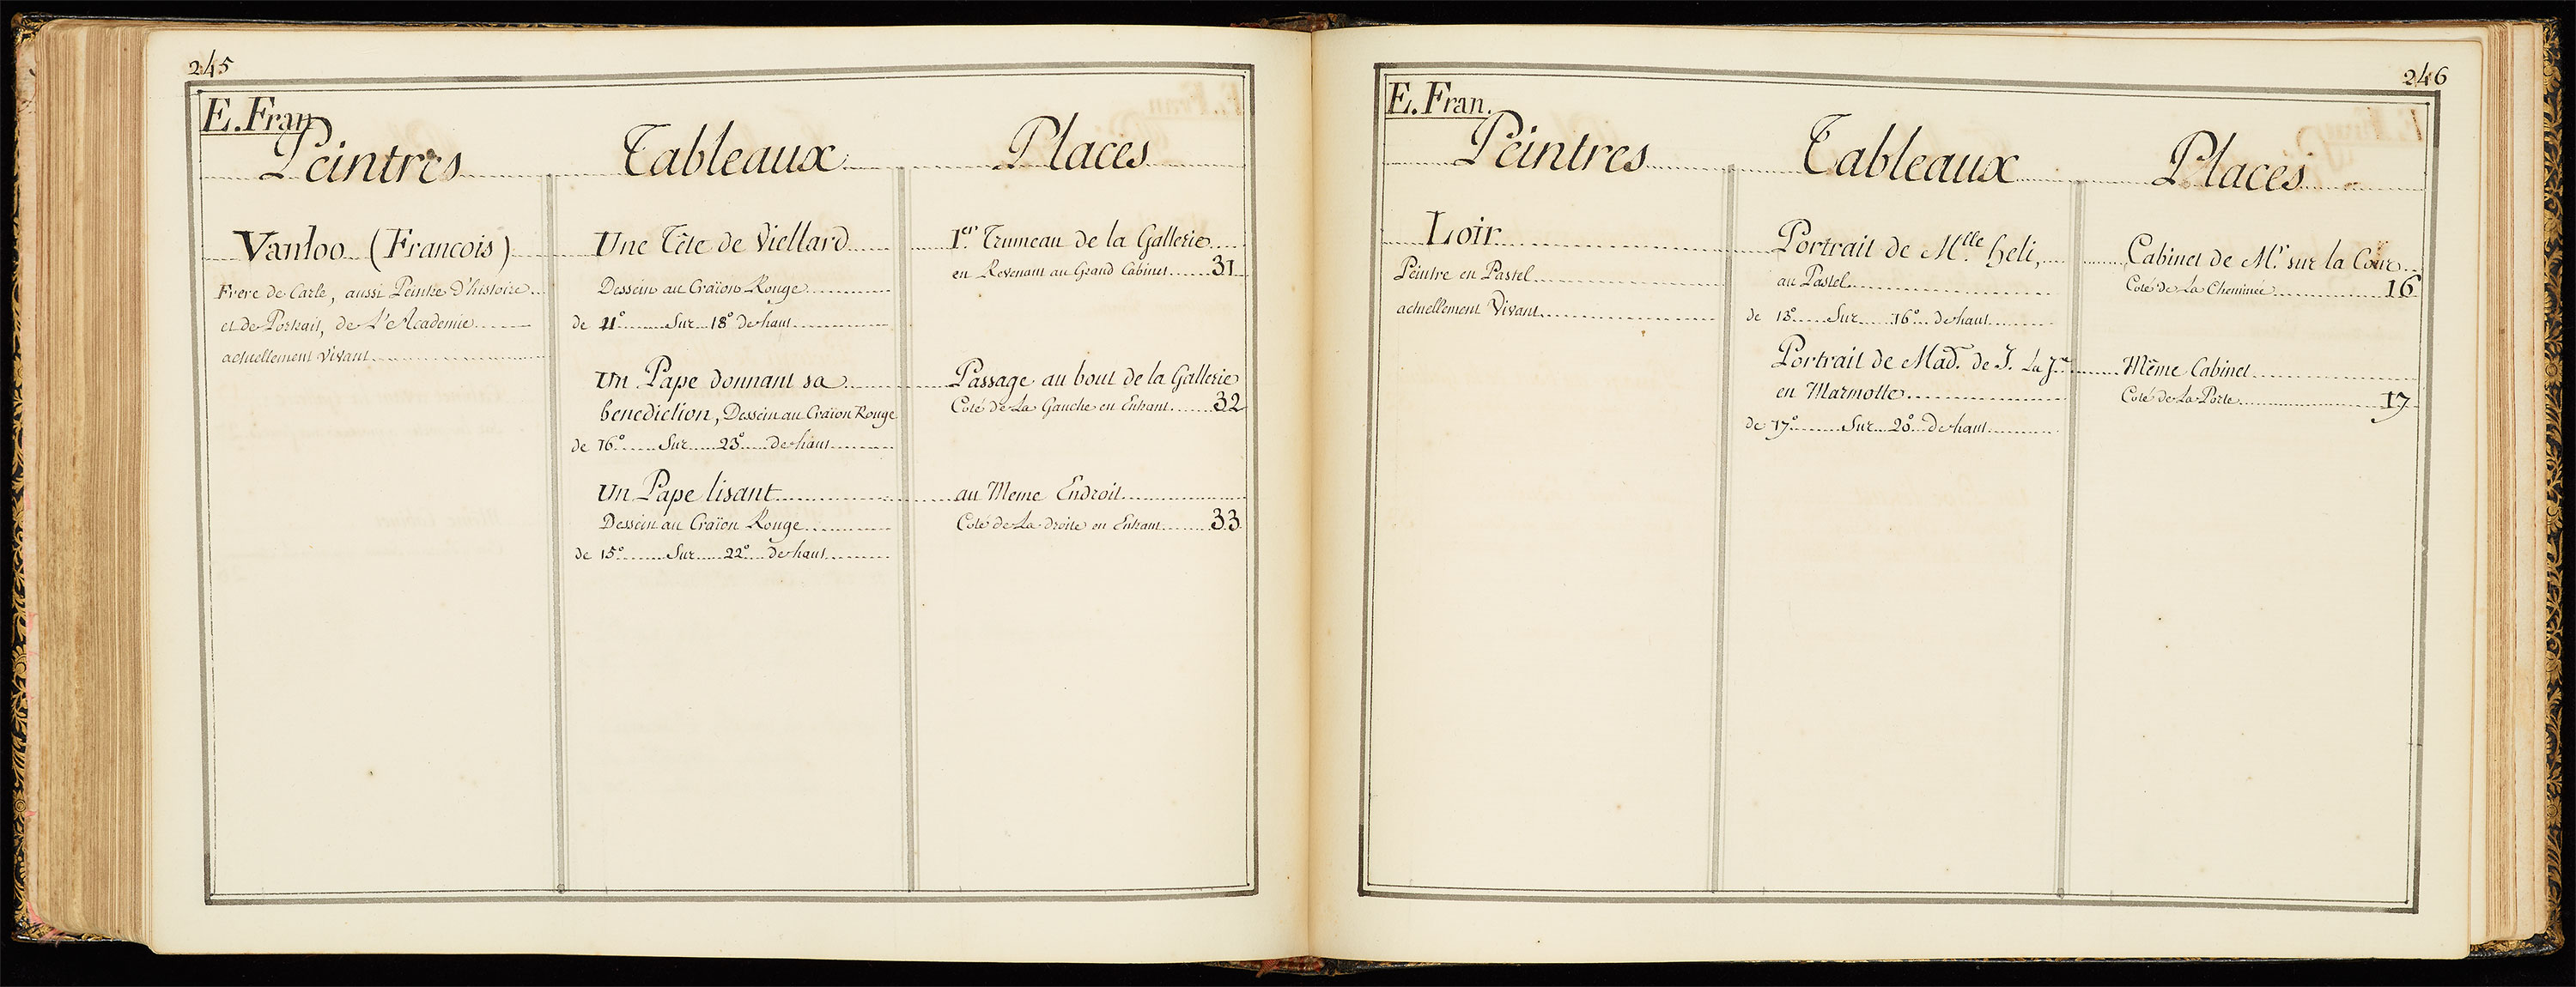 245
E. Fran
Peintres Tableaux Places
Vanloo (Francois) Une Tête de Viellard 1er. Trumeau de la Gallerie
en Revenant au Grand Cabinet 31
Frere de Carle, aussi Peintre d'histoire Dessein au Craïon Rouge
et de Portrait, de L'Academie de 11° Sur 18° de haut
actuellement Vivant
Un Pape donnant sa Passage au bout de la Gallerie
benediction, Dessein au Craïon Rouge Coté de La Gauche en Entrant 32
de 16° Sur 23° de haut
Un Pape lisant au Meme Endroit
Dessein au Craïon Rouge Coté de La droite en Entrant 33
de 15° Sur 22° de haut
246
E. Fran.
Peintres Tableaux Places
Loir Portrait de Mlle. heli, Cabinet de Mr. sur la Cour
Peintre en Pastel au Pastel Coté de La Cheminée 16
actuellement Vivant de 13° Sur 16° de haut
Portrait de Mad. de S. Même Cabinet
en Marmotte Coté de La Porte 17
de 17° Sur 20° de haut